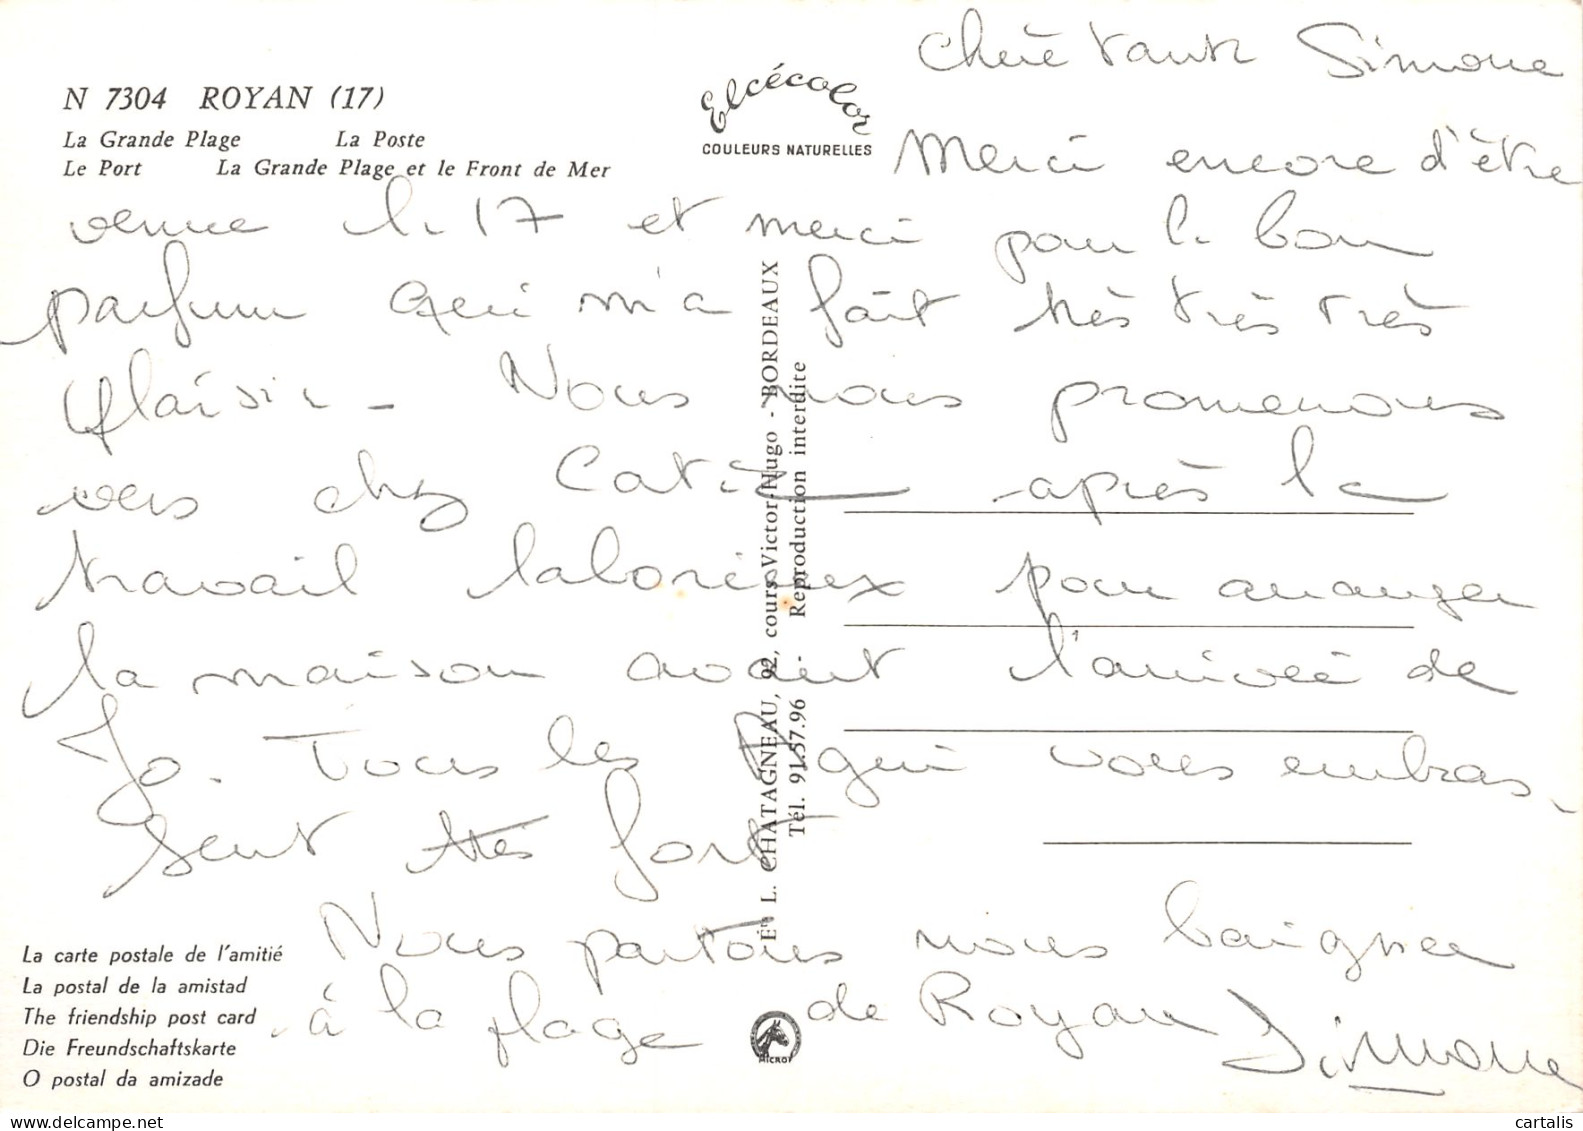 Chère tante Simone
N 7304 ROYAN (17)
Elcécolor
COULEURS NATURELLES
La Grande Plage La Poste
Le Port La Grande Plage et le Front de Mer
Merci encore d'être
venue le 17 et merci pour le bon
parfum qui m'a fait très très très
plaisir - Nous nous promenons
vers chez Catie après la
travail laborieux pour arranger
la maison avant l'arrivée de
Jo. Tous les qui vous embras-
sent très fort
Nous partons nous baigner
à la plage de Royan Simone
Éts L. CHATAGNEAU, 92, cours Victor Hugo - BORDEAUX
Tél. 91.57.96 - Reproduction interdite
La carte postale de l'amitié
La postal de la amistad
The friendship post card
Die Freundschaftskarte
O postal da amizade
MICRO
cartalis